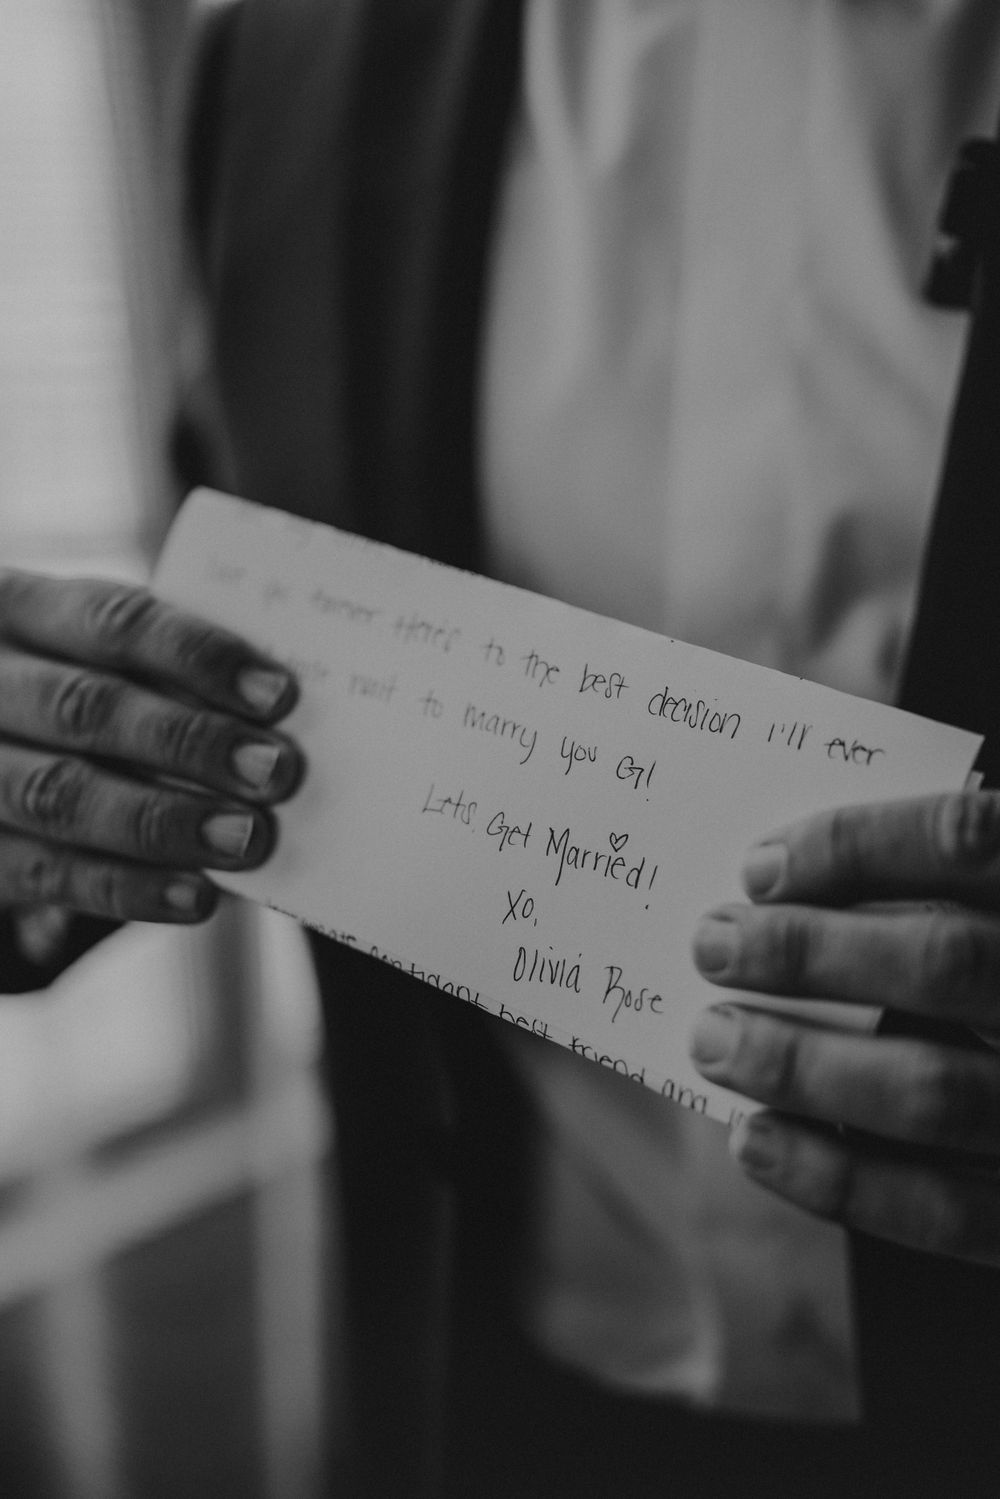 forever. Here's to the best decision I'll ever
wait to marry you G!
Lets Get Married!
Xo,
Olivia Rose
confidant best friend and